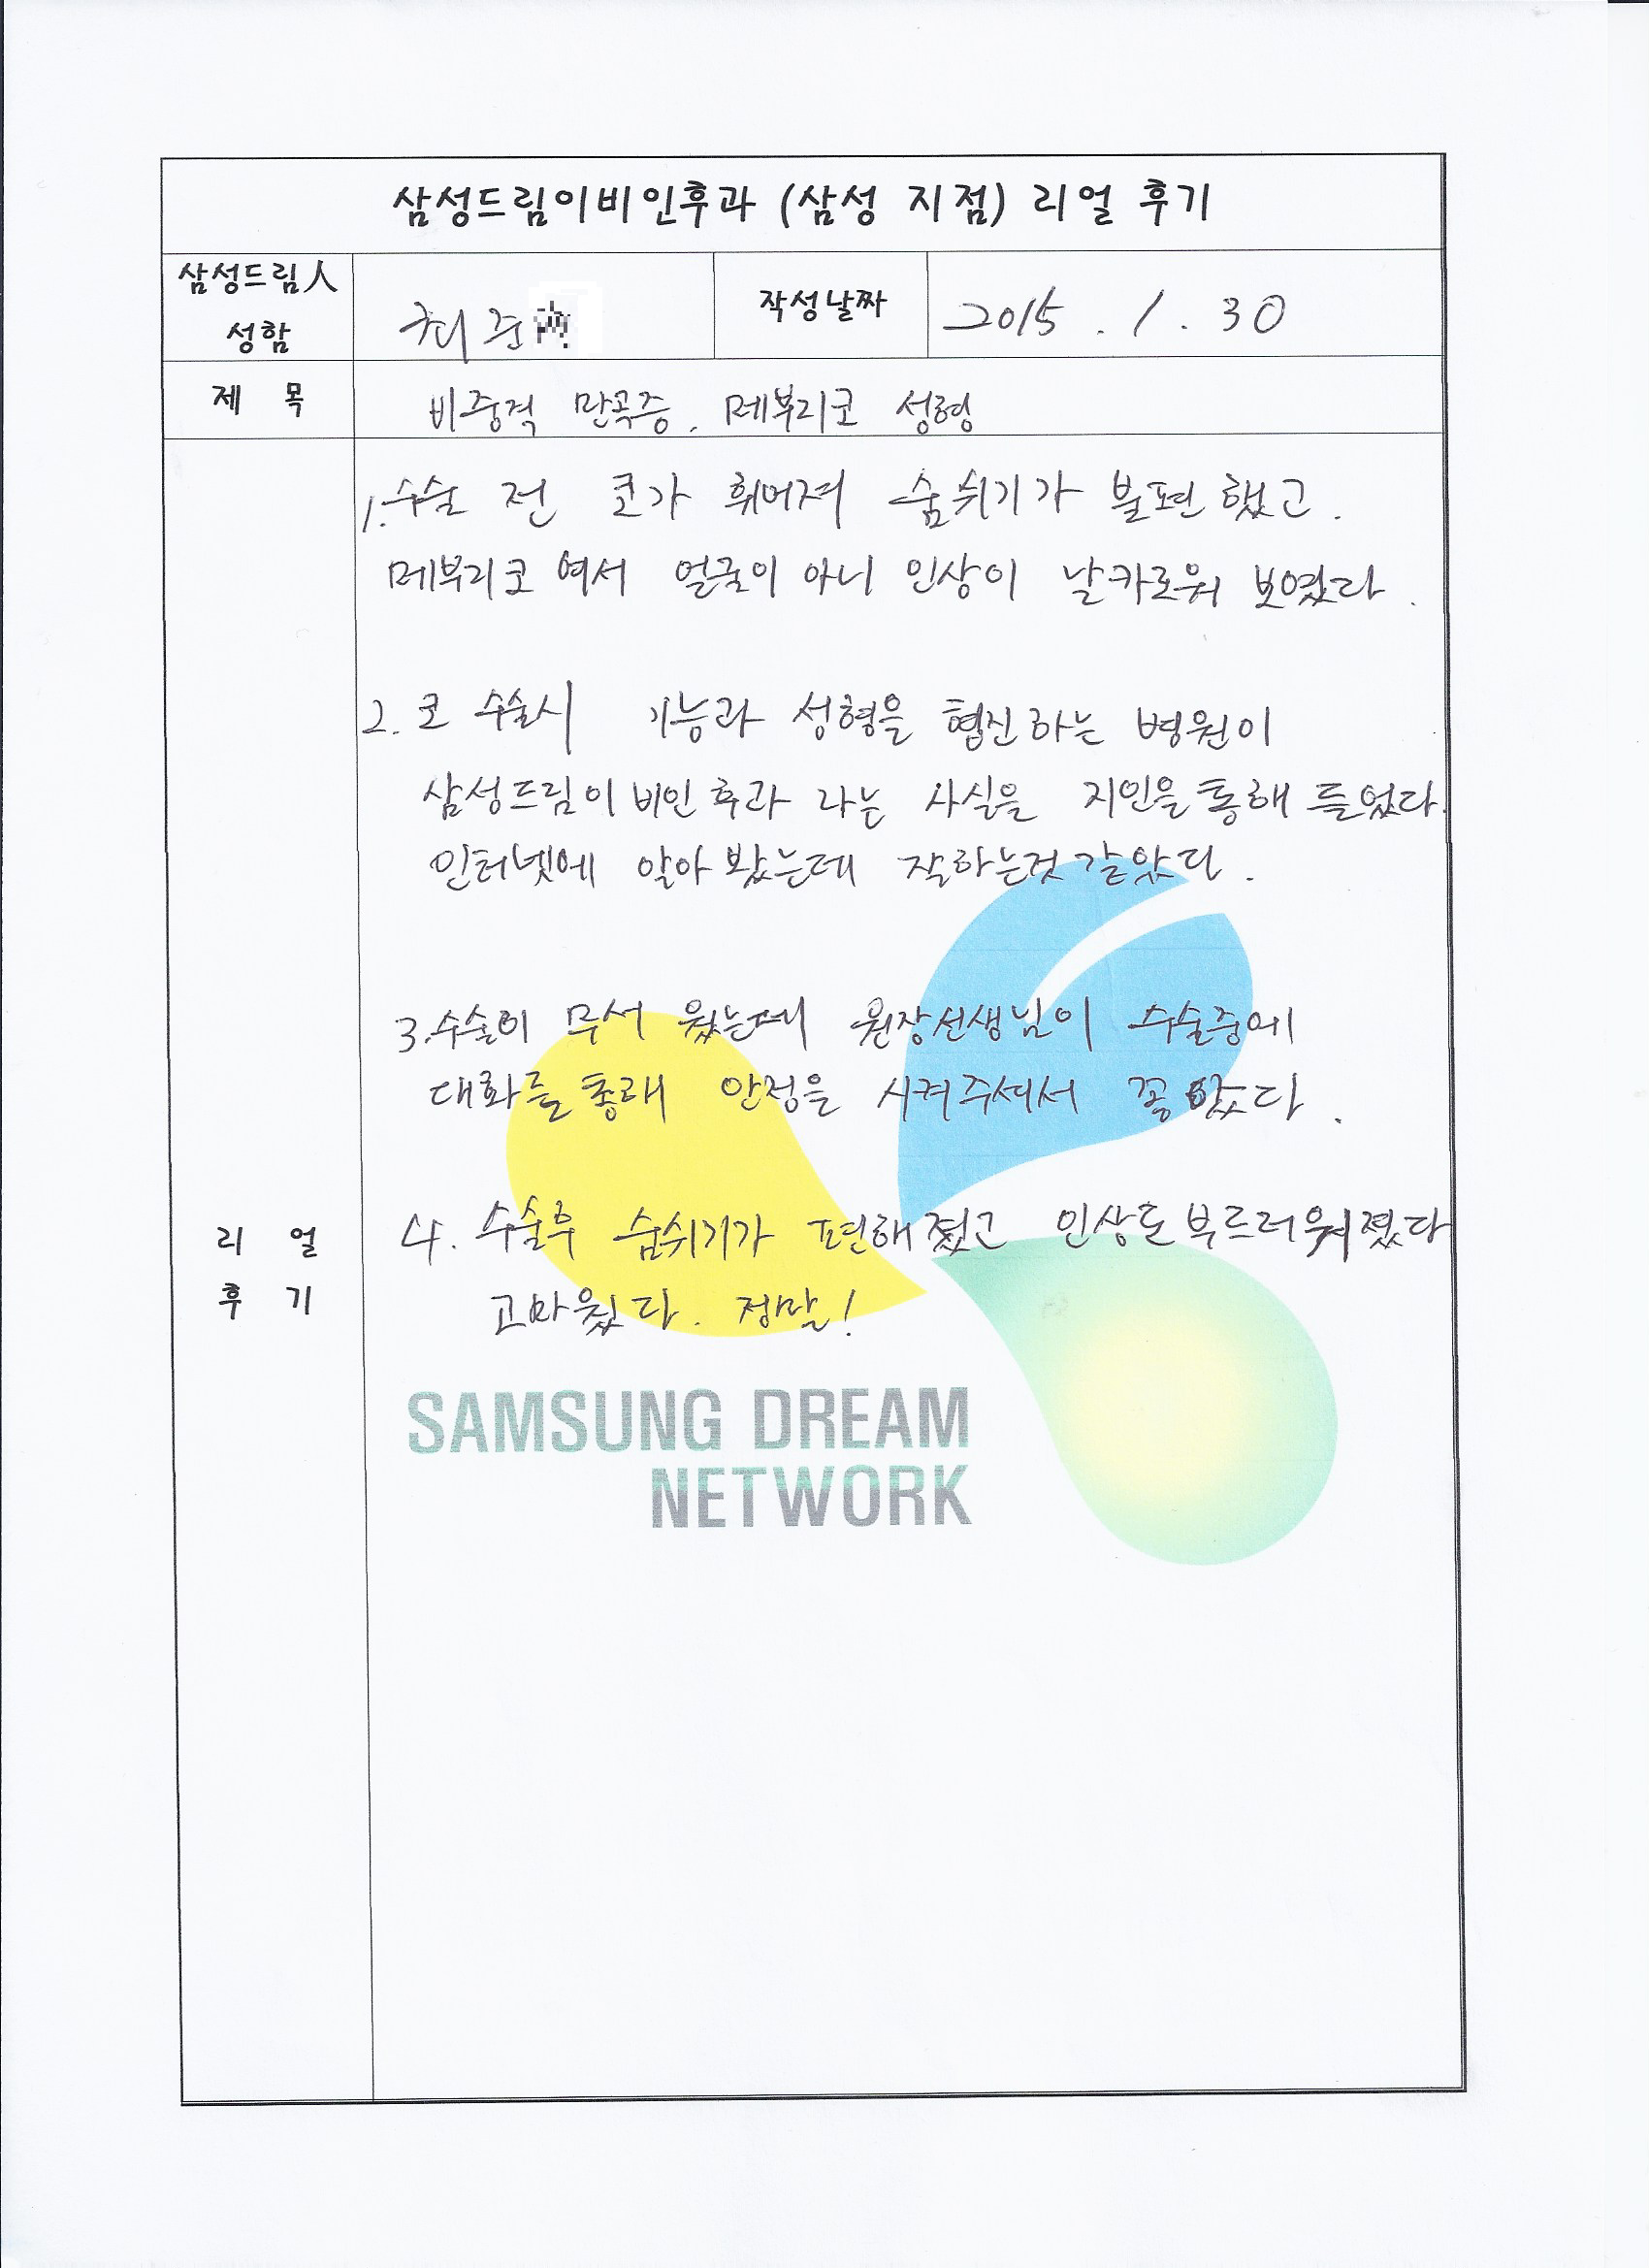 삼성드림이비인후과 (삼성 지점) 리얼 후기
삼성드림人
성함
최준
작성날짜
2015. 1. 30
제 목
비중격 만곡증. 메부리코 성형
1. 수술 전 코가 휘어져 숨쉬기가 불편했고.
메부리코 여서 얼굴이 아니 인상이 날카로워 보였다.
2. 코 수술시 기능과 성형을 협진하는 병원이
삼성드림이비인후과 라는 사실을 지인을 통해 들었다.
인터넷에 알아 봤는데 잘하는것 같았다.
3. 수술이 무서 웠는데 원장선생님이 수술중에
대화를 통해 안정을 시켜주셔서 좋았다.
리 얼
후 기
4. 수술후 숨쉬기가 편해졌고 인상도 부드러워졌다
고마웠다. 정말!
SAMSUNG DREAM
NETWORK